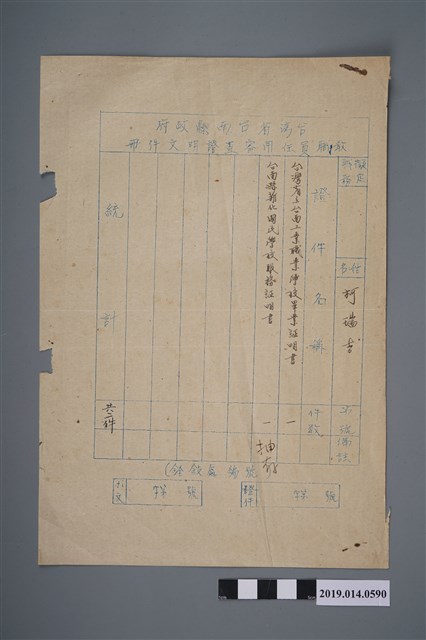 台湾省台南縣政府
教職員任用審查證明文件冊
擬定
職務
姓名
柯瑞吉
證件名稱
件數
台灣省立台南工業職業學校畢業証明書
一
台南縣新化國民學校職務証明書
一
抽存
統計
共二件
字第 號
證件
字第 號
2019.014.0590